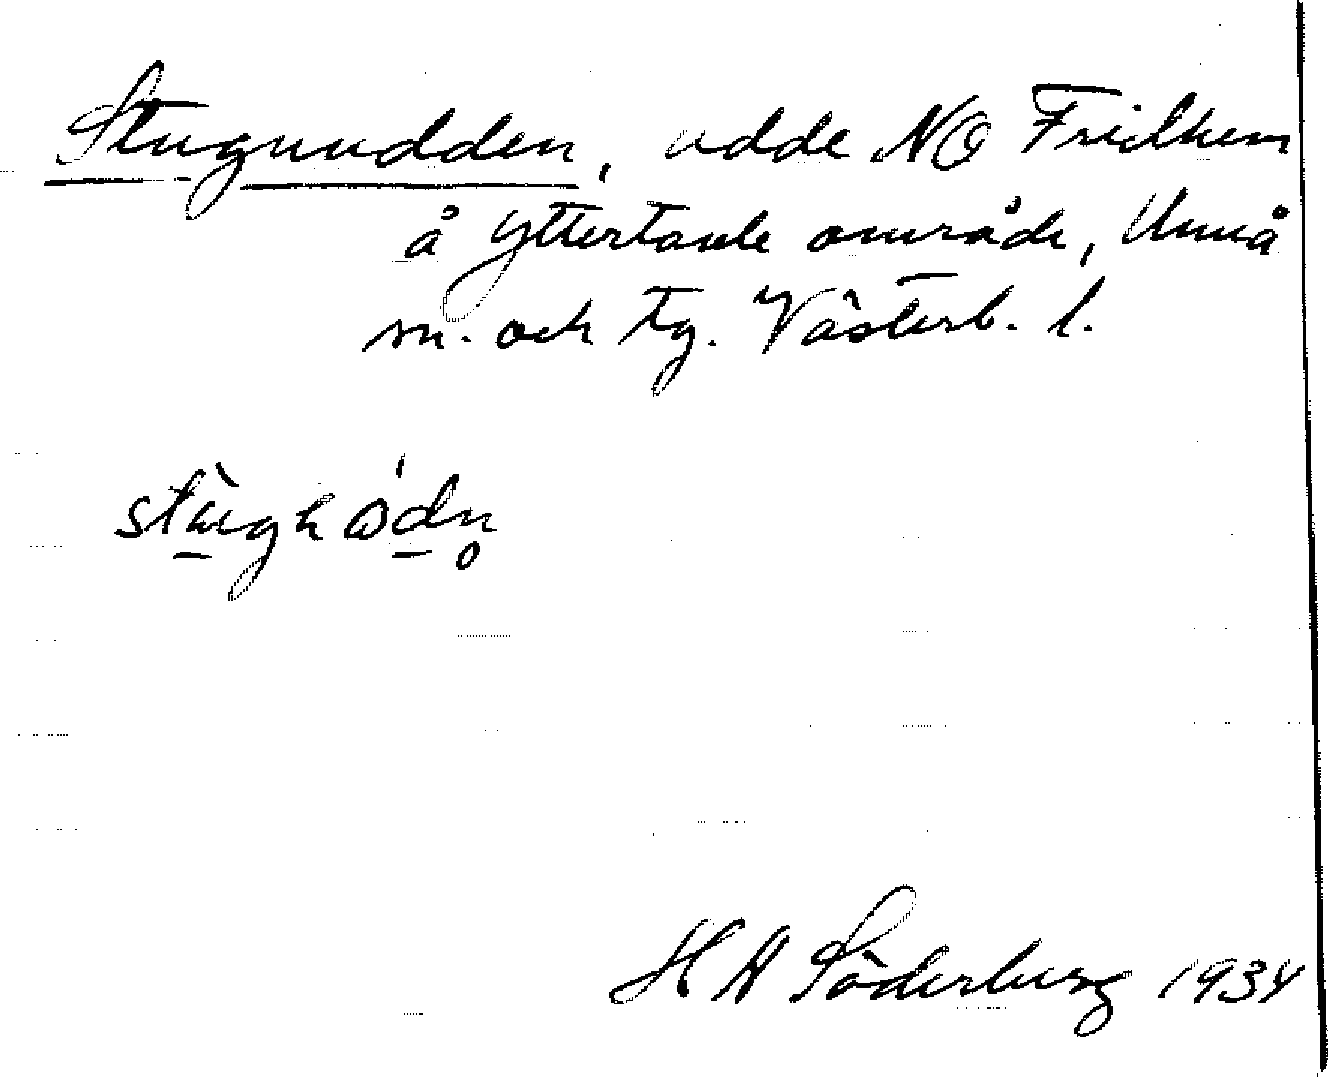 Stugnudden, udde NO Fridhem
å Yttertavle område, Umeå
sn. och tg. Västerb. l.
H A Söderberg 1934